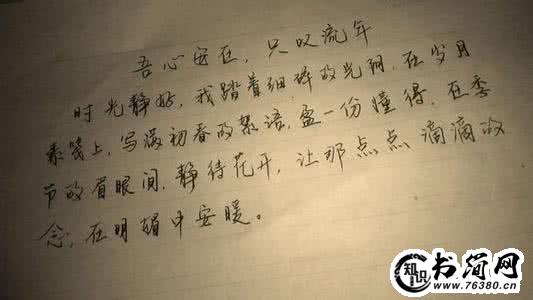 吾心安在，只叹流年
时光静好，我踏着细碎的光阴，在岁月
素笺上，写满初春的絮语，盈一份懂得，在季
节的眉眼间，静待花开，让那点点滴滴的
念，在明媚中安暖。
知识
书简网
www.76380.cn